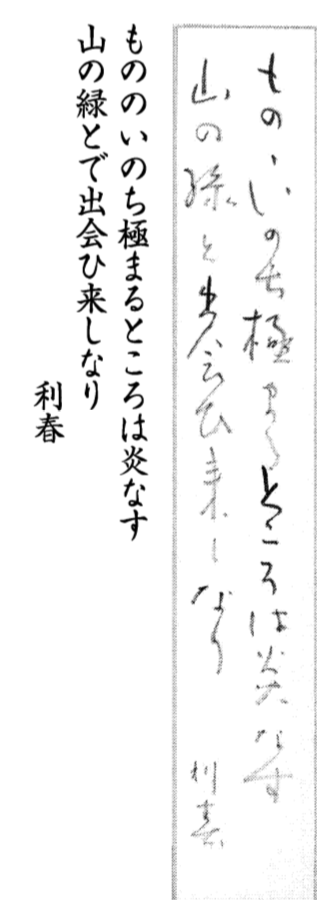 ものゝいのち極まるところは炎なす
山の緑と出会ひ来しなり　利春
もののいのち極まるところは炎なす
山の緑とで出会ひ来しなり
利春